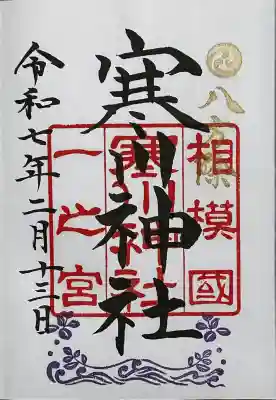 八方除
相模國
寒川神社
一之宮
寒川神社
令和七年二月十三日